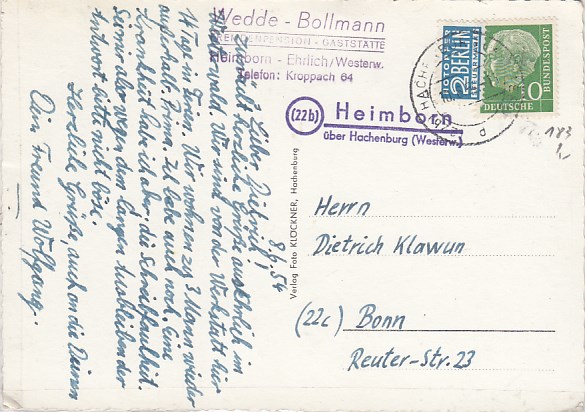 Wedde - Bollmann
FREMDENPENSION - GASTSTÄTTE
Heimborn - Ehrlich/Westerw.
Telefon: Kroppach 64
8.4.54
Lieber Dietrich!
Zunächst herzliche Grüße aus Ehrlich im
Westerwald. Wir sind von der Werkstatt hier
14 Tag in Ferien. Wir wohnen zu 3 Mann wieder
außerhalb Bonn. habe auch noch. Eine
Krankheit habe ich aber, die Schreibfaulheit.
Sei mir aber wegen dem langen Ausbleiben der
Antwort bitte nicht böse.
Herzliche Grüße, auch an die Deinen
Dein Freund Wolfgang.
Verlag Foto KLÖCKNER, Hachenburg
(22b) Heimborn
über Hachenburg (Westerw.)
NOTOPFER
2 BERLIN
STEUERMARKE
DEUTSCHE
BUNDESPOST
HACHE
183
Herrn
Dietrich Klawun
(22c) Bonn
Reuter-Str. 23